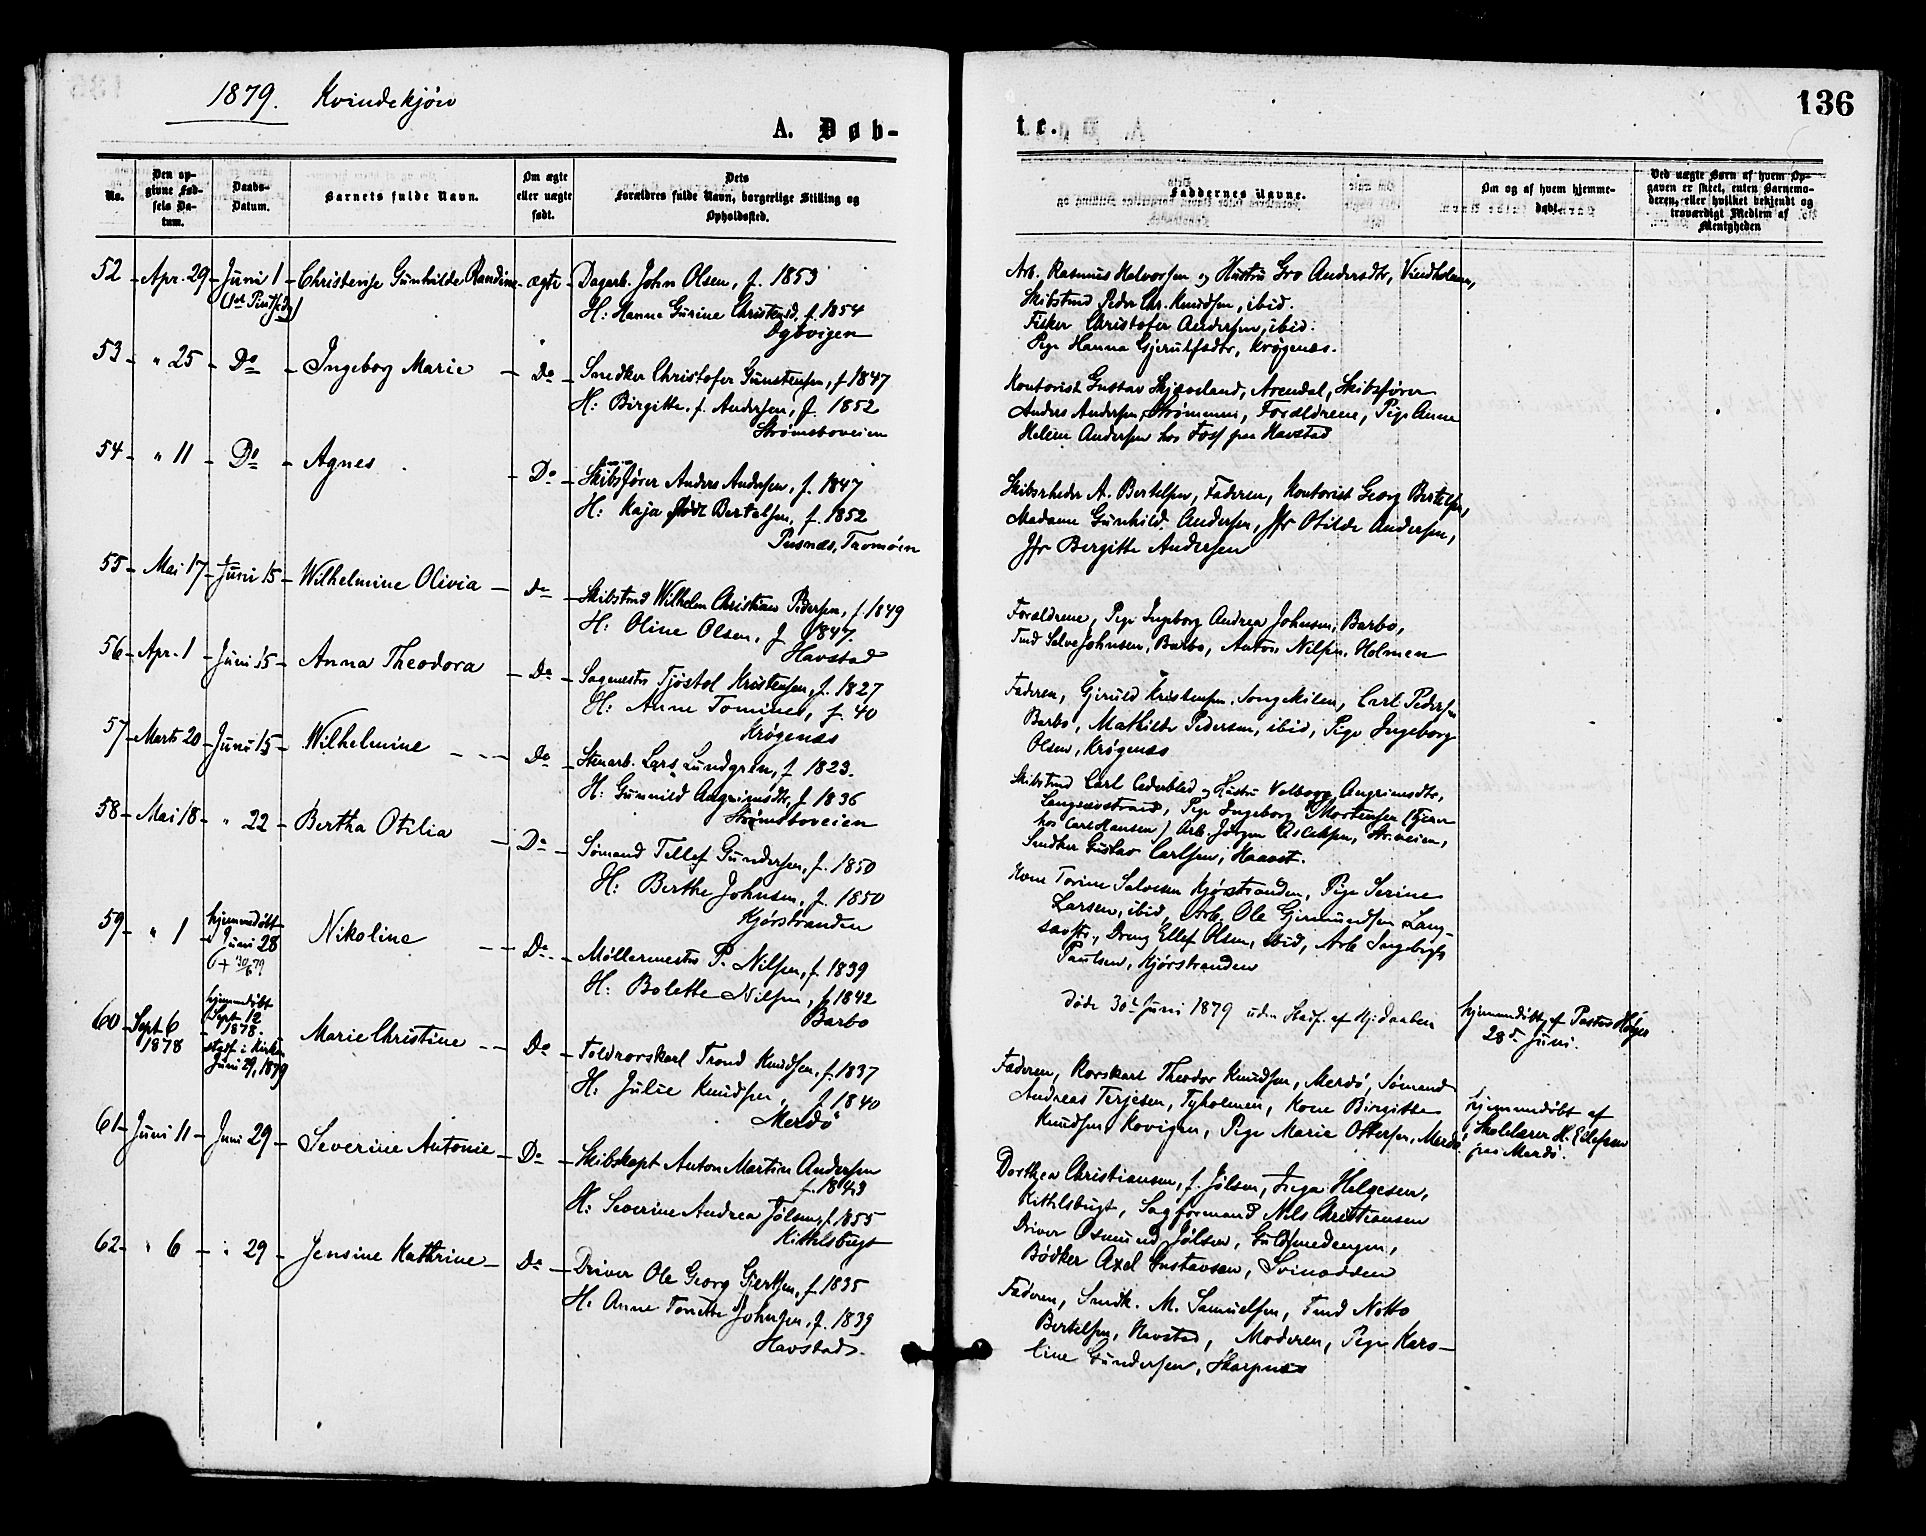 1879. Kvindekjøn
136
A. Døb-
te.
No.
Den op-
givne Fød-
sels Da-
tum.
Daabs-
Datum.
Barnets fulde Navn.
Om ægte
eller uægte
født.
Dets
Forældres fulde Navn, borgerlige Stilling og
Opholdssted.
Faddernes Navne.
Om og af hvem hjemme-
døbt.
Ved uægte Børn af hvem Op-
gaven er skeet, enten Barnemo-
deren, eller hvilket bekjendt og
troværdigt Medlem af
Menigheden
52 - Apr. 29 - Juni 1 - Christense Gunhilde Randine - ægte - Dagarb. John Olsen, f. 1853
H: Hanne Gurine Christensd. f. 1854
Arb. Rasmus Halvorsen og Hustru Gro Andersdtr, Vindholmen,
Skibstmd Peder Chr. Knudsen, ibid.
Fisker Christofer Andersen, ibid.
Pige Hanna Gjerulfsdtr, Krøgenæs.
53 - " 25 - Do - Ingeborg Marie - Do - Snedker Christofer Gunstensen, f 1847
H: Birgitte f. Andersen, f. 1852
Strømsboveien
Kontorist Gustav Skjæveland, Arendal, Skibsfører
Anders Andersen, Strømmen, Forældrene, Pige Anne
Helene Andersen hos Foss paa Havstad
54 - " 11 - Do - Agnes - Do - Skibsfører Anders Andersen, f. 1847
H: Kaja født Bertelsen, f. 1852
Pusnæs, Tromøen
Skibsrheder A. Bertelsen, Faderen, Kontorist Georg Bertelsen,
Madame Gunhild Andersen, Jfr Otilde Andersen,
Jfr Bergitte Andersen
55 - Mai 17 - Juni 15 - Wilhelmine Olivia - Do - Skibstmd Wilhelm Christian Pedersen, f. 1849
H: Oline Olsen, f 1847.
Havstad
Forældrene, Pige Ingeborg Andrea Johnsen, Barbo,
Tmd Salve Johnsen, Barbo, Anton Nilsen, Holmen
56 - Apr. 1 - Juni 15 - Anna Theodora - Do - Sagmester Tjøstol Kristensen, f. 1827
H: Anne Tomine, f. 40
Krøgenæs
Faderen, Gjeruld Kristensen, Songekilen, Carl Pedersen
Barbo, Mathilde Pedersen, ibid, Pige Ingeborg
Olsen, Krøgenæs
57 - Marts 20 - Juni 15 - Wilhelmine - Do - Stenarb. Lars Lundgren, f 1823.
H: Gunnild Angrimsdtr, f 1836
Strømsboveien
Skibstmd Carl Cederblad og Hustru Valborg Angrimsdtr,
Langsævstrand, Pige Ingeborg Mortensen (Tjener
hos Carl Hansen) Arb. Jørgen Aslaksen, Str.veien,
Snedker Gustav Carlsen,
58 - Mai 18 - " 22 - Bertha Otilia - Do - Sømand Tellef Gundersen, f. 1850
H: Berthe Johnsen, f. 1850
Kjørstranden
Kone Torine Salvesen Kjørstranden, Pige Serine
Larsen, ibid, Arb. Ole Gjermundsen Lang-
sævstr., Dreng Ellef Olsen, ibid, Arb Ingebrigt
Paulsen, Kjørstranden
59 - " 1 - hjemmedøbt
Juni 28
(+ 30/6 79
Nikoline - Do - Møllermester P. Nilsen, f. 1839
H: Bolette Nilsen, f 1842
Barbo
døde 30t Juni 1879 uden Stadf. af Hj.daaben
hjemmedøbt af Pastor Høyer
28d Juni.
60 - Sept. 6
1878
hjemmedøbt
Sept 12
1878.
stadf. i Kirken
Juni 29, 1879
Marie Christine - Do - Toldrorskarl Trond Knudsen, f. 1837
H: Julie Knudsen, f 1840
Merdø
Faderen, Rorskarl Theodor Knudsen, Merdø, Sømand
Andreas Terjesen, Tyholmen, Kone Birgitte
Knudsen, Kovigen, Pige Marie Ottersen, Merdø.
hjemmedøbt af
Skolelærer H. Eilefsen
paa Merdø.
61 - Juni 11 - Juni 29 - Severine Antonie - Do - Skibskapt Anton Martin Andersen
f. 1843
H: Severine Andrea Jølsen, f. 1855
Kittelsbugt
Dorthea Christiansen, f. Jølsen, Inga Helgesen,
Kittelsbugt, Sagformand Nils Christiansen
Driver Osmund Jølsen, Guldsmedengen,
Bødker Axel Gustavsen, Svinodden
62 - " 6 - " 29 - Jensine Kathrine - Do - Driver Ole Georg Gjertsen, f. 1835
H: Anne Tonette Johnsen, f. 1839
Havstad.
Faderen, Snedk. M. Samuelsen, Tmd Notto
Bertelsen, Havstad, Moderen, Pige Karo-
line Gundersen, Skarpnæs